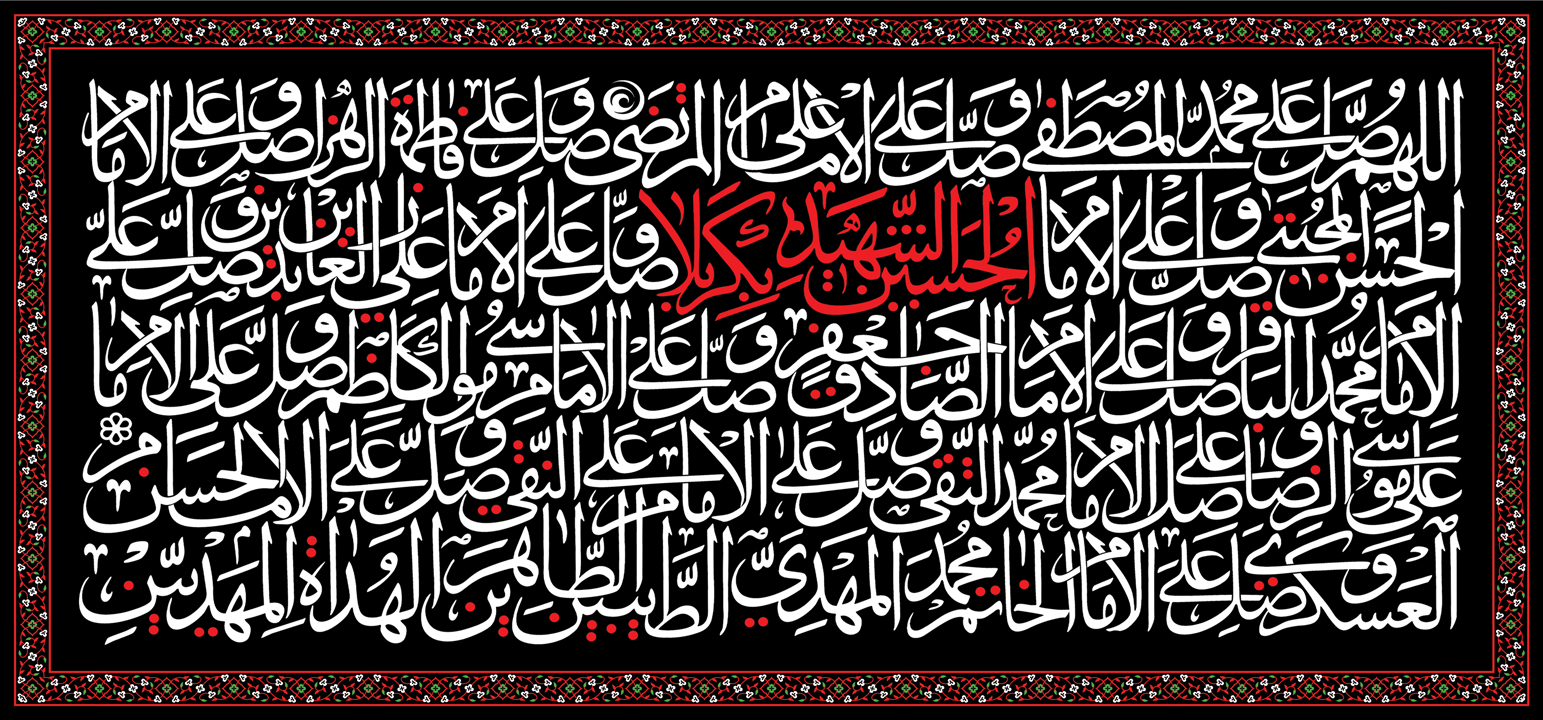 اللهم صل على محمد المصطفى وصل على الامام على المرتضى وصل على فاطمة الزهرا وصل على الامام
الحسن المجتبى وصل على الامام الحسين الشهيد بكربلا وصل على الامام على زين العابدين وصل على
الامام محمد الباقر وصل على الامام جعفر الصادق وصل على الامام موسى الكاظم وصل على الامام
على موسى الرضا وصل على الامام محمد التقى وصل على الامام النقى وصل على الامام الحسن
العسكرى وصل على الامام الخاتم محمد المهدى الطيبين الطاهرين الهداة المهديين